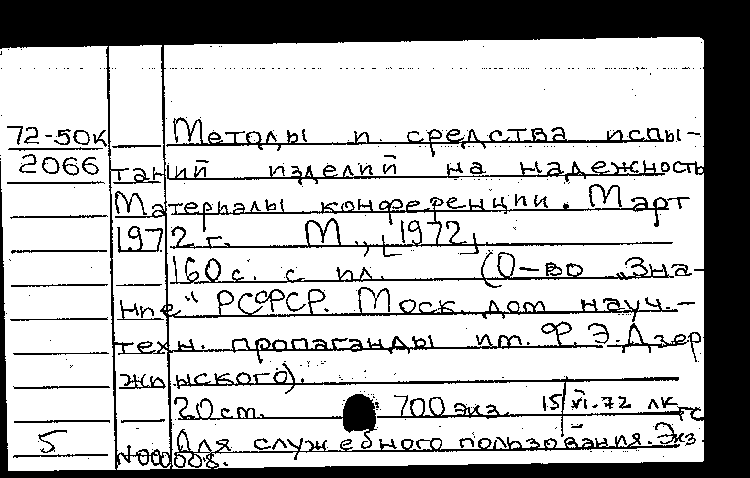 72-50к Методы и средства испы-
2066 таний изделий на надежность
Материалы конференции. Март
1972 г. М., [1972]
160 с. с ил. (О-во „Зна-
ние" РСФСР. Моск. дом науч.-
техн. пропаганды им. Ф. Э. Дзер
жинского).
20 см. 700 экз. 15/VI-72 ЛК ГС
5 Для служебного пользования. Экз.
№000008.